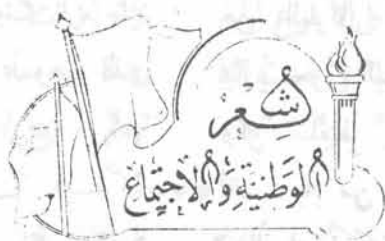 شِعر
الوَطنيّةِ وَالاجتِمَاع